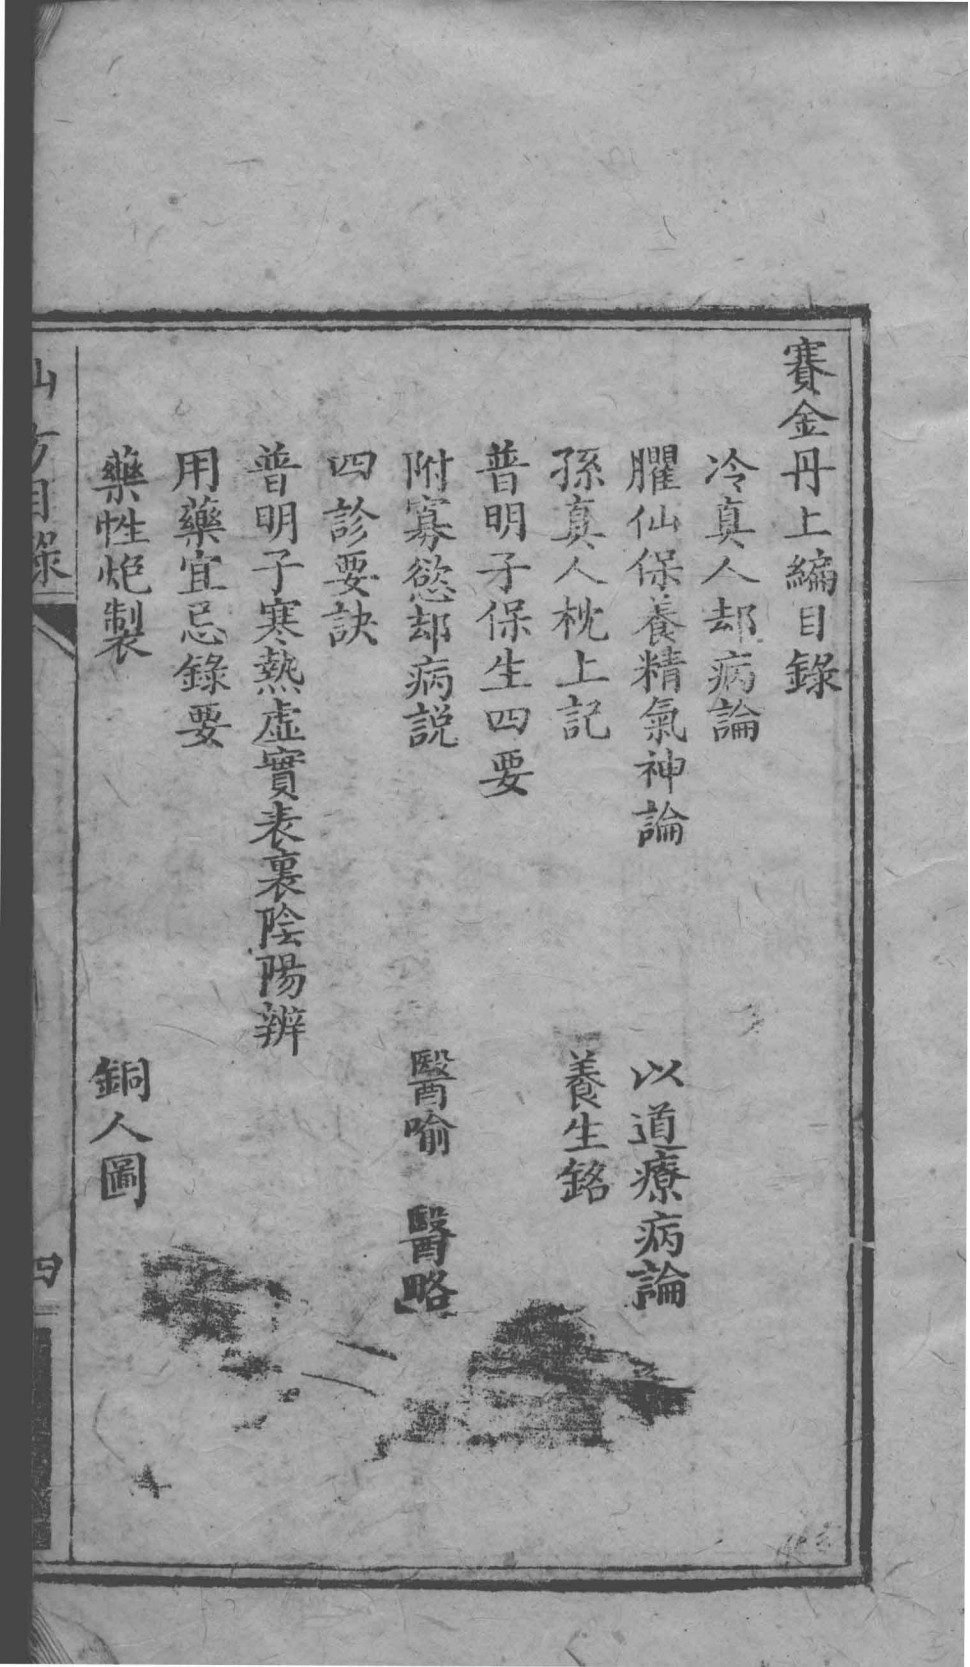 賽金丹上編目錄
冷真人却病論
臞仙保養精氣神論 以道療病論
孫真人枕上記 養生銘
普明子保生四要
附寡慾却病説 醫喻 醫略
四診要訣
普明子寒熱虛實表裏陰陽辨
用藥宜忌錄要
藥性炮製 銅人圖
仙方目錄
四